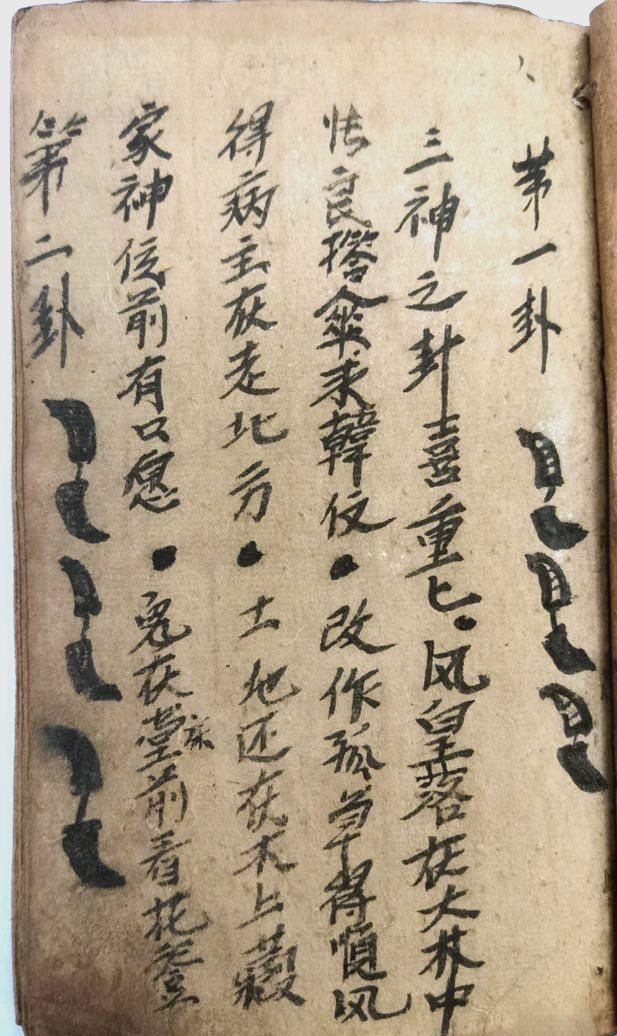 第一卦
三神之卦喜重匕。风皇落在大林中
张良撘伞求韓仗。改作孤单得順风
得病主在走北方。土地还在木上藏
家神位前有口愿。鬼在堂前看花登
第二卦